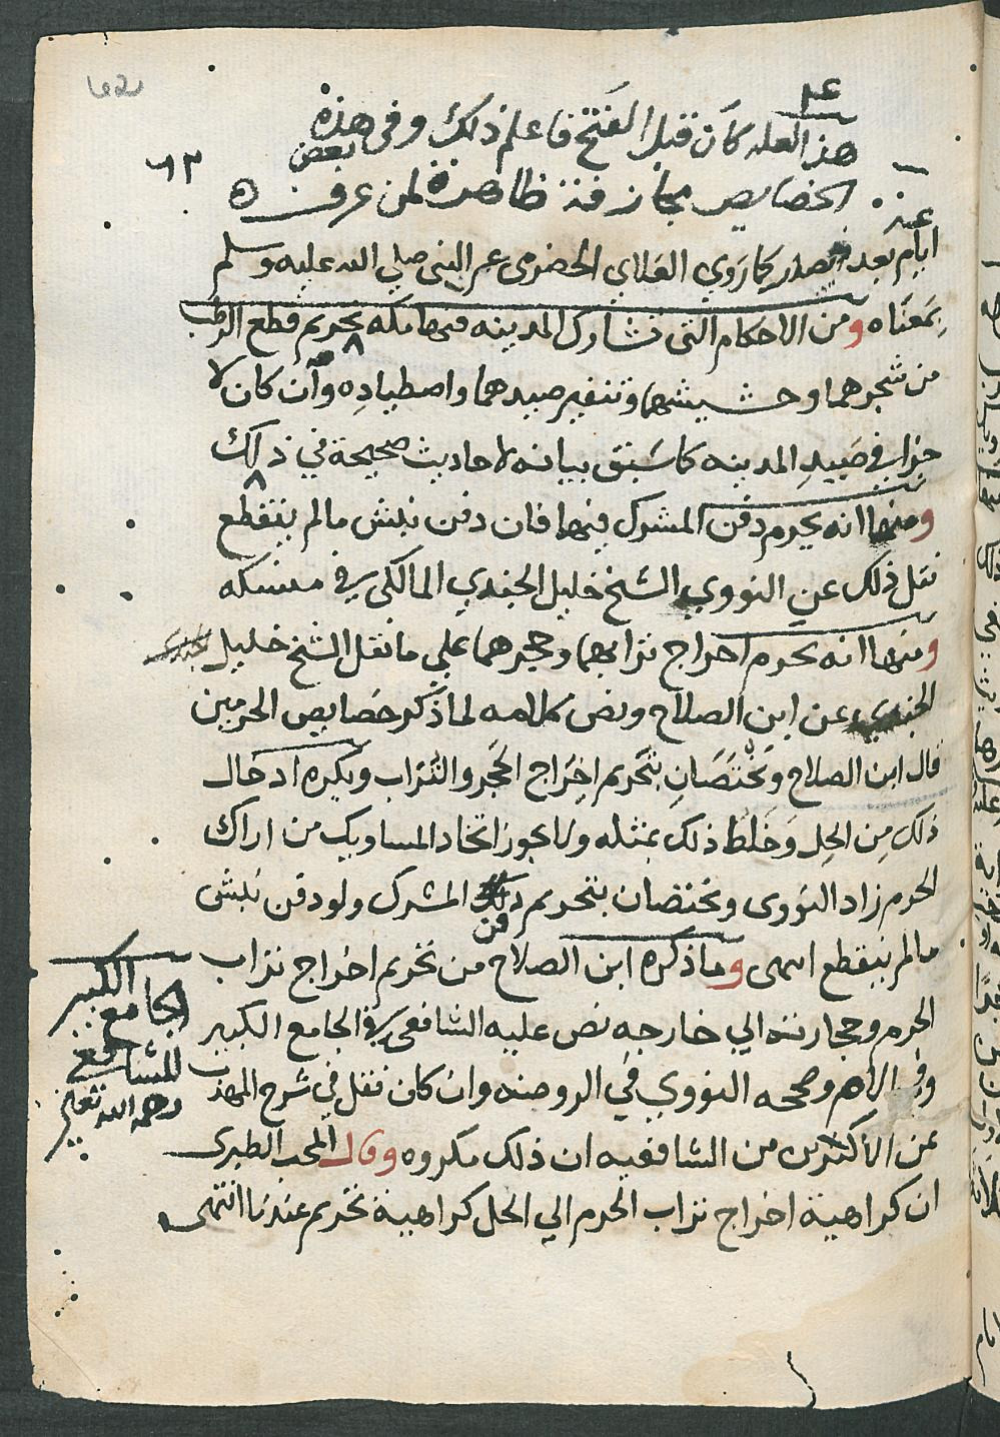 هذا لعله كان قبل الفتح فاعلم ذلك وفي هذه
بعض
٦٣
الخصايص مجازفة ظاهرة لمن عرف
ايام بعد الصدر كما روي العلاي الحضرمى عن النبى صلى الله عليه وسلم
بمعناه ومن الاحكام التى تشارك المدينه فيها مكه تحريم قطع الرطب
من شجرهما وحشيشهما وتنفير صيدهما واصطياده وان كان لا
جزا في صيد المدينه كما سبق بيانه لاحاديث صحيحة في ذلك
ومنها انه يحرم دفن المشرك فيها فان دفن نبش مالم يتقطع
نقل ذلك عن النووي الشيخ خليل الجندي المالكى في منسكه
ومنها انه يحرم اخراج ترابهما وحجرهما علي ما نقل الشيخ خليل
الجندي عن ابن الصلاح ونص كلامه لما ذكر خصايص الحرمين
قال ابن الصلاح وتختصان بتحريم اخراج الحجر والتراب ويكره ادخال
ذلك من الحل وخلط ذلك بمثله ولا يجوز اتخاد المساويك من اراك
الحرم زاد النووى وتختصان بتحريم دفن المشرك ولو دفن نبش
مالم يتقطع انتهى وما ذكره ابن الصلاح من تحريم اخراج تراب
الحرم وحجارته الي خارجه نص عليه الشافعى في الجامع الكبير
وفي الام وصححه النووي في الروضه وان كان نقل في شرح المهذب
عن الاكثرين من الشافعيه ان ذلك مكروه وقال المحب الطبرى
ان كراهية اخراج تراب الحرم الي الحل كراهية تحريم عندنا انتهى
الجامع الكبير
للشافعي
رحمه الله تعالى